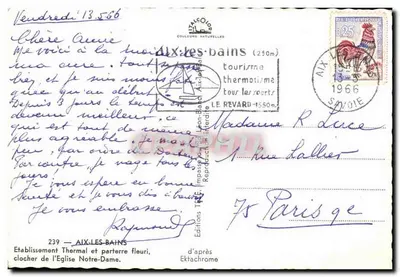 Vendredi 13.5.66
Chère Amie
Me voici à la moitié de
ma cure. Tout se passe
bien, et je suis moins
que au début
Depuis 3 jours le temps est
devenu meilleur, ce
qui est tout de même
plus agréable. Je
peu, par ordre du Docteur
Par contre, je nage tous les
jours!
Je vous espère en bonne
santé et je vous dis à bientôt
Je vous embrasse
Raymonde
239 - AIX-LES-BAINS
Etablissement Thermal et parterre fleuri,
clocher de l'Eglise Notre-Dame.
d'après
Ektachrome
AIX-les-bains (250m)
tourisme
thermalisme
tous les sports
LE REVARD 1550m
AIX-LES-BAINS
1966
SAVOIE
Madame R. Luce
1 rue Lallier
75 Paris 9e